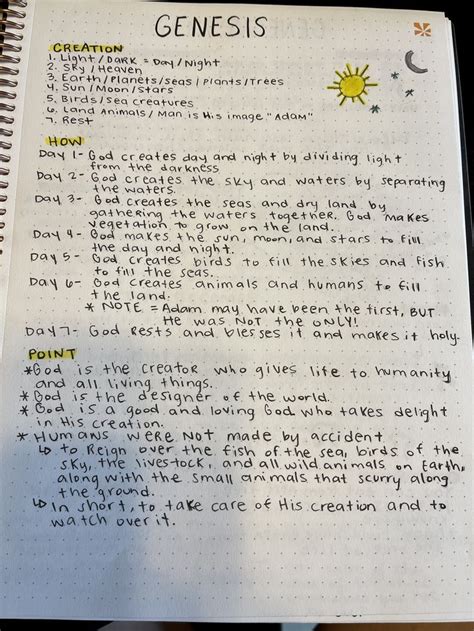 GENESIS
CREATION
1. Light/DARK = Day/Night
2. SKY/Heaven
3. Earth/Planets/Seas/Plants/Trees
4. Sun/Moon/Stars
5. Birds/Sea creatures
6. Land Animals/Man is His image "Adam"
7. Rest
HOW
Day 1- God creates day and night by dividing light
from the darkness
Day 2- God creates the sky and waters by separating
the waters.
Day 3- God creates the seas and dry land by
gathering the waters together. God makes
vegetation to grow on the land.
Day 4- God makes the sun, moon, and stars to fill
the day and night.
Day 5- God creates birds to fill the skies and fish
to fill the seas.
Day 6- God creates animals and humans to fill
the land.
* NOTE = Adam may have been the first, BUT
He was NOT the ONLY!
Day 7- God Rests and blesses it and makes it holy.
POINT
*God is the creator who gives life to humanity
and all living things.
* God is the designer of the world.
* God is a good and loving God who takes delight
in His creation.
* Humans were not made by accident
↳ to Reign over the fish of the sea, birds of the
sky, the livestock, and all wild animals on Earth,
along with the small animals that scurry along
the ground.
↳ In short, to take care of His creation and to
watch over it.